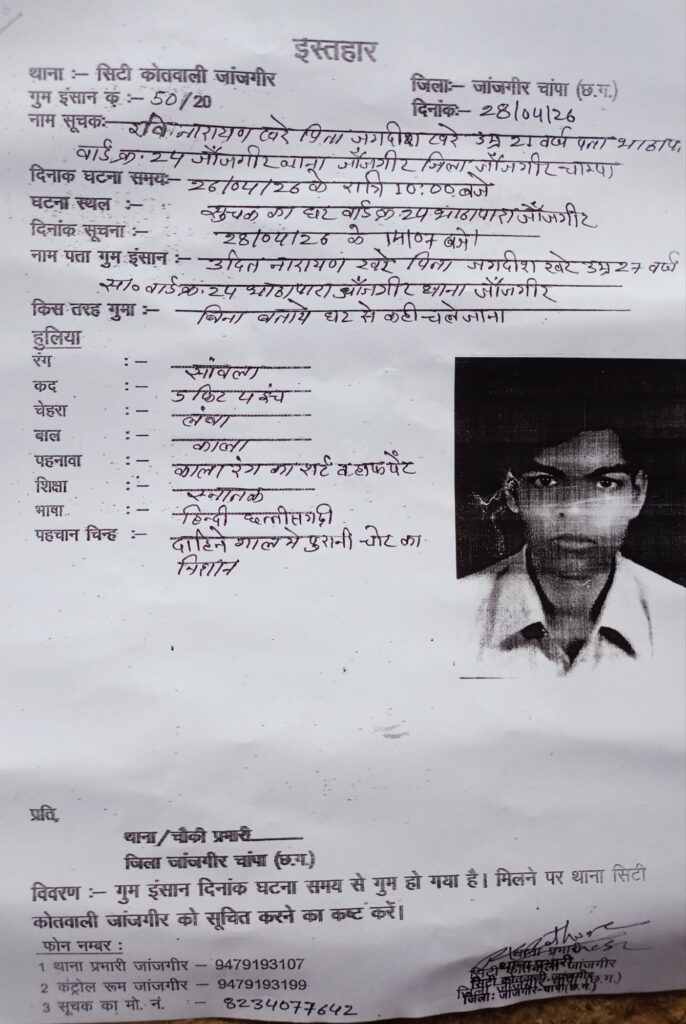 इस्तहार
थाना :– सिटी कोतवाली जांजगीर
जिला:– जांजगीर चांपा (छ.ग.)
गुम इंसान क्र :– 50/20
दिनांक:– 28/04/26
नाम सूचक:– रवि नारायण खरे पिता जगदीश खरे उम्र 21 वर्ष पता भाठापा.
वार्ड क्र. 24 जाँजगीर थाना जाँजगीर जिला जाँजगीर-चाम्पा
दिनाक घटना समय:– 26/04/26 के रात्रि 10:00 बजे
घटना स्थल :– सूचक का घर वार्ड क्र 24 भाठापारा जाँजगीर
दिनांक सूचना :– 28/04/26 के 14/07 बजे
नाम पता गुम इंसान :– उदित नारायण खरे पिता जगदीश खरे उम्र 27 वर्ष
सा० वार्ड क्र. 24 भाठापारा जाँजगीर थाना जाँजगीर
किस तरह गुमा :– बिना बताये घर से कही चले जाना
हुलिया
रंग :– सांवला
कद :– 5 फिट 4 इंच
चेहरा :– लंबा
बाल :– काला
पहनावा :– काला रंग का शर्ट व हाफ पेंट
शिक्षा :– स्नातक
भाषा :– हिन्दी छत्तीसगढ़ी
पहचान चिन्ह :– दाहिने गाल मे पुरानी चोट का
निशान
प्रति,
थाना/चौकी प्रभारी
जिला जांजगीर चांपा (छ.ग.)
विवरण :– गुम इंसान दिनांक घटना समय से गुम हो गया है। मिलने पर थाना सिटी
कोतवाली जांजगीर को सूचित करने का कष्ट करें।
फोन नम्बर :
1 थाना प्रभारी जांजगीर – 9479193107
2 कंट्रोल रूम जांजगीर – 9479193199
3 सूचक का मो. नं. - 8234077642
थाना प्रभारी
सिटी कोतवाली जांजगीर
जिला: जांजगीर-चांपा (छ.ग.)